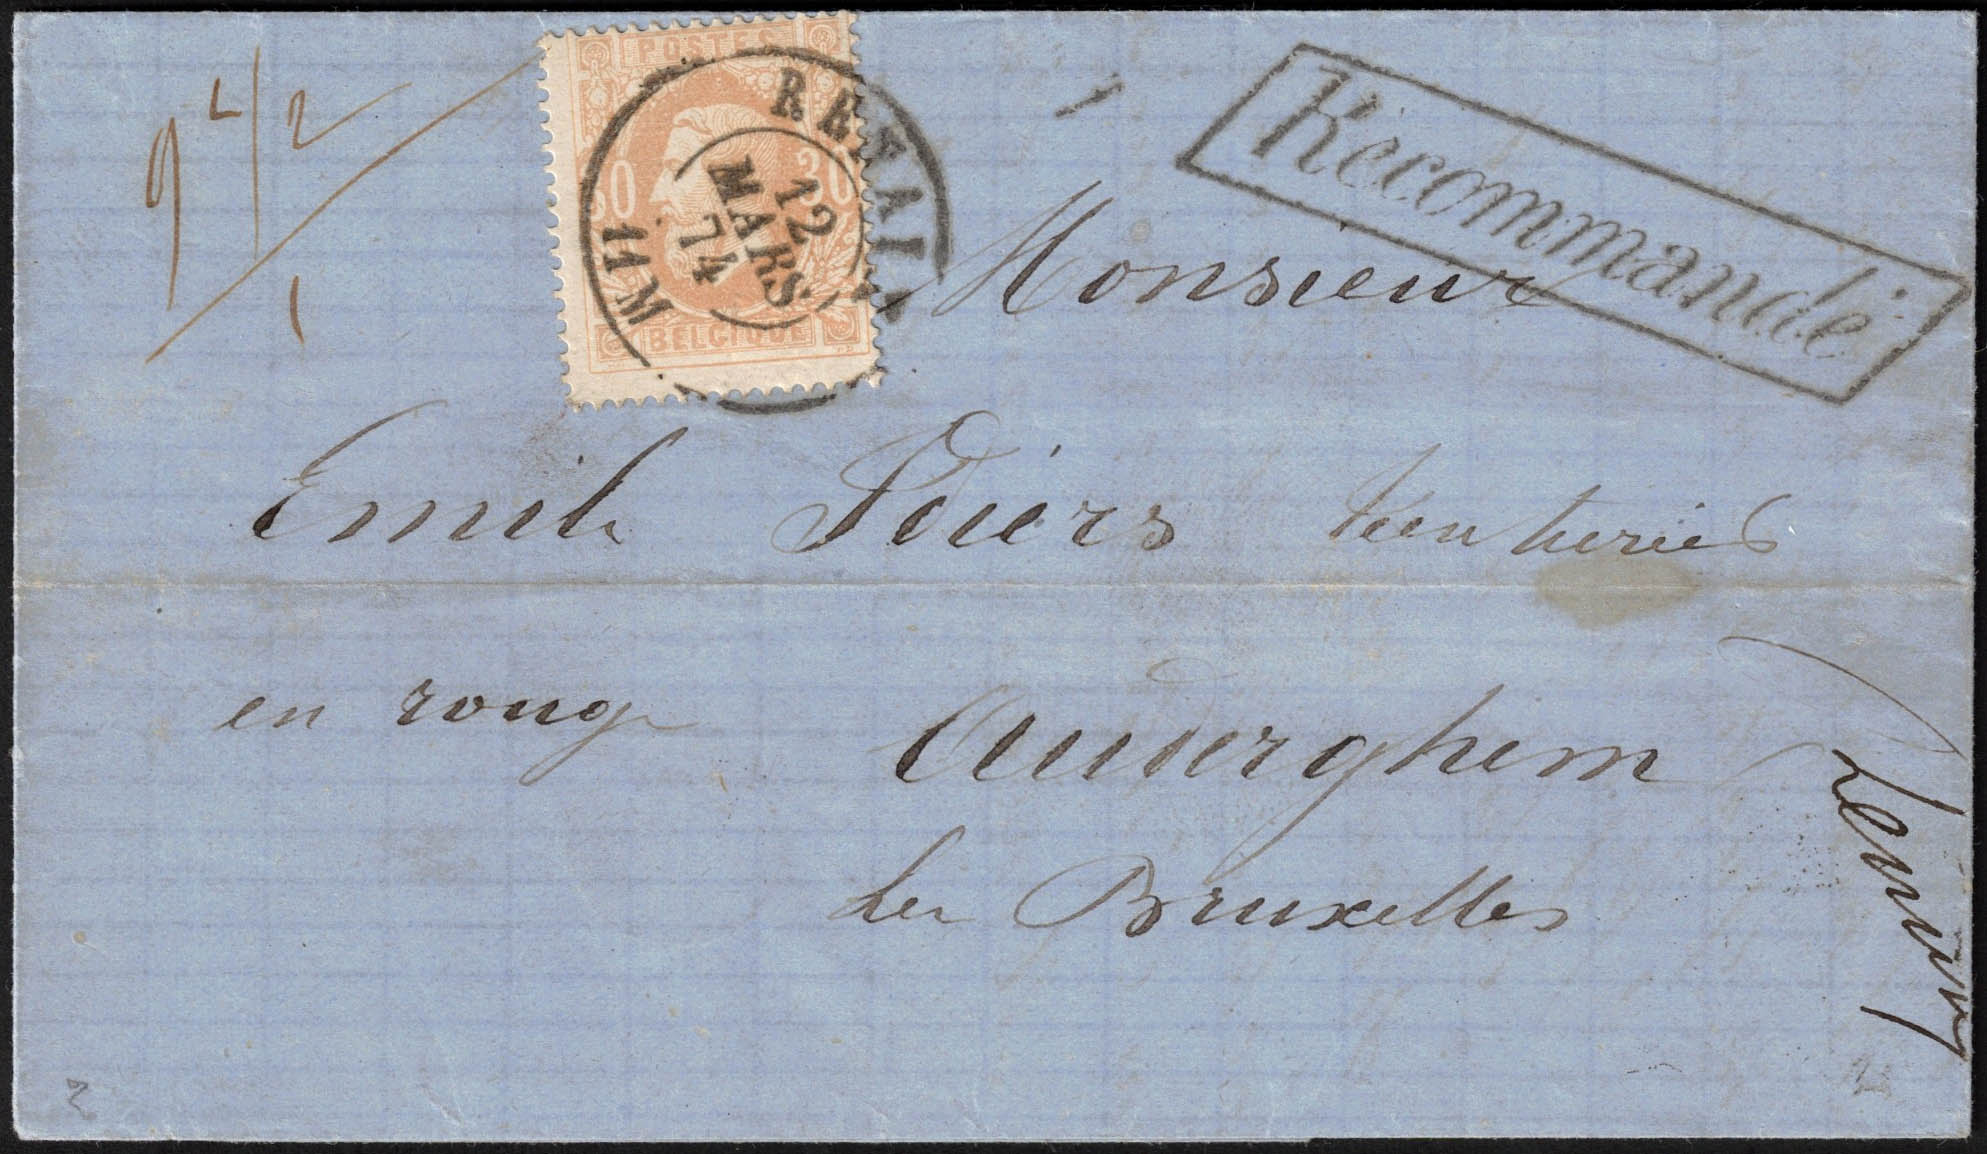 POSTES
30 30
BELGIQUE
RENAIX
12
MARS
74
11 M
Recommandé
Monsieur
Emile teinturier
en rouge Auderghem
Lez Bruxelles
2